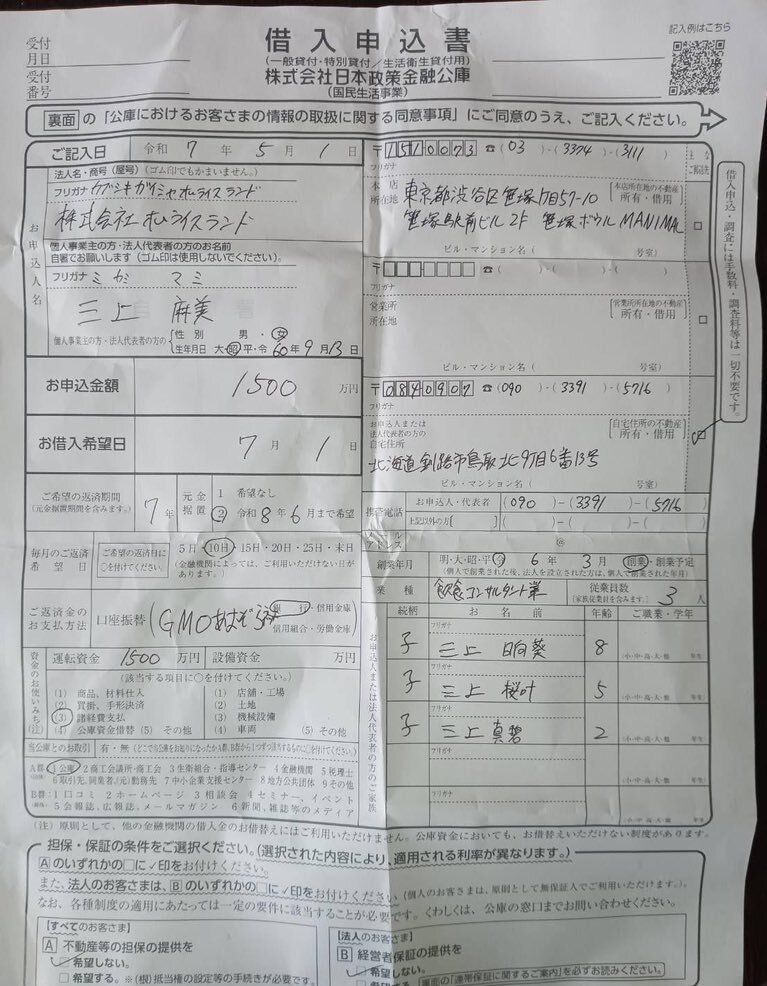 記入例はこちら
受付
月日
受付
番号
借入申込書
(一般貸付・特別貸付/生活衛生貸付用)
株式会社日本政策金融公庫
(国民生活事業)
裏面 の「公庫におけるお客さまの情報の取扱に関する同意事項」にご同意のうえ、ご記入ください。
借入申込・調査には手数料・調査料等は一切不要です。
ご記入日 令和 7 年 5 月 1 日
お申込人名
法人名・商号(屋号)(ゴム印でもかまいません。)
フリガナ
株式会社
個人事業主の方・法人代表者の方のお名前
自署でお願いします(ゴム印は使用しないでください)。
フリガナ ミカミ マミ
三上 麻美
個人事業主の方・法人代表者の方の
性別 男・女
生年月日 大・昭・平・令 60年 9月 13日
お申込金額 1500 万円
お借入希望日 7月 1日
ご希望の返済期間
(元金据置期間を含みます。)
7年
元金据置
1 希望なし
2 令和 8年 6月まで希望
毎月のご返済希望日
ご希望の返済日に○を付けてください。
5日・10日・15日・20日・25日・末日
(金融機関によっては、ご利用いただけない日があります。)
ご返済金のお支払方法
口座振替 (GMOあおぞら 銀行・信用金庫
信用組合・労働金庫
資金のお使いみち(注)
運転資金 1500 万円 設備資金 万円
(該当する項目に○を付けてください。)
(1) 商品、材料仕入 (1) 店舗・工場
(2) 買掛、手形決済 (2) 土地
(3) 諸経費支払 (3) 機械設備
(4) 公庫資金借替 (5) その他 (4) 車両 (5) その他
当公庫とのお取引 有・無
A群: 1 公庫 2 商工会議所・商工会 3 生衛組合・指導センター 4 金融機関 5 税理士
6 取引先、同業者、(元)勤務先 7 中小企業支援センター 8 地方公共団体 9 その他
B群: 1 口コミ 2 ホームページ 3 相談会 4 セミナー、イベント
5 会報誌、広報誌、メールマガジン 6 新聞、雑誌等のメディア
〒1510073 ☎(03)-(3374)-(3111)
フリガナ
本店所在地
東京都渋谷区笹塚1丁目57-10
笹塚駅前ビル2F 笹塚ボウル MANIMAL
本店所在地の不動産
所有・借用
ビル・マンション名( 号室)
〒 ☎( )-( )-( )
フリガナ
営業所所在地
営業所所在地の不動産
所有・借用
ビル・マンション名( 号室)
〒0840907 ☎(090)-(3391)-(5716)
フリガナ
お申込人または法人代表者の方の自宅住所
自宅住所の不動産
所有・借用
北海道釧路市鳥取北9丁目6番13号
ビル・マンション名( 号室)
携帯電話
お申込人・代表者 (090)-(3391)-(5716)
上記以外の方[ ] ( )-( )-( )
@
創業年月 明・大・昭・平・令 6年 3月 創業・創業予定
(個人で創業された後、法人を設立された方は、個人で創業された年月)
業種 飲食コンサルタント業
従業員数
(家族従業員を含みます。)
3人
お申込人または法人代表者の方のご家族
続柄 お名前 年齢 ご職業・学年
フリガナ
子 三上 日向葵 8
フリガナ
子 三上 桜叶 5
フリガナ
子 三上 真碧 2
フリガナ
フリガナ
(注)原則として、他の金融機関の借入金のお借替えにはご利用いただけません。公庫資金においても、お借替えいただけない制度があります。
担保・保証の条件をご選択ください。(選択された内容により、適用される利率が異なります。)
Aのいずれかの□に✓印をお付けください。
また、法人のお客さまは、Bのいずれかの□に✓印をお付けください(個人のお客さまは、原則として無保証人でご利用いただけます。)。
なお、各種制度の適用にあたっては一定の要件に該当することが必要です。くわしくは、公庫の窓口までお問い合わせください。
【すべてのお客さま】
A 不動産等の担保の提供を
希望しない。
希望する。※(根)抵当権の設定等の手続きが必要です。
【法人のお客さま】
B 経営者保証の提供を
希望しない。
裏面の「連帯保証に関するご案内」を必ずお読みください。